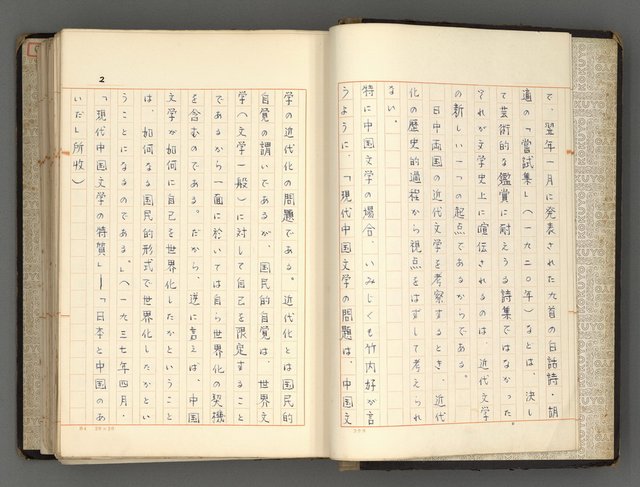 て、翌年一月に発表された九首の白話詩・胡
適の「嘗試集」(一九二〇年)などは、決し
て芸術的な鑑賞に耐えうる詩集ではなかった。
それが文学史上に喧伝されるのは、近代文学
の新しい一つの起点であるからである。
日中両国の近代文学を考察するとき、近代
化の歴史的過程から視点をはずして考えられ
ない。
特に中国文学の場合、いみじくも竹内好が言
うように、「現代中国文学の問題は、中国文
2
学の近代化の問題である。近代化とは国民的
自覚の謂いであるが、国民的自覚は、世界文
学(文学一般)に対して自己を限定すること
であるから一面に於いては自ら世界化の契機
を含むのである。だから、逆に言えば、中国
文学が如何に自己を世界化したかということ
は、如何なる国民的形式で世界化したかとい
うことになるのである。」(一九三七年四月・
「現代中国文学の特質」―「日本と中国のあ
いだ」所收)